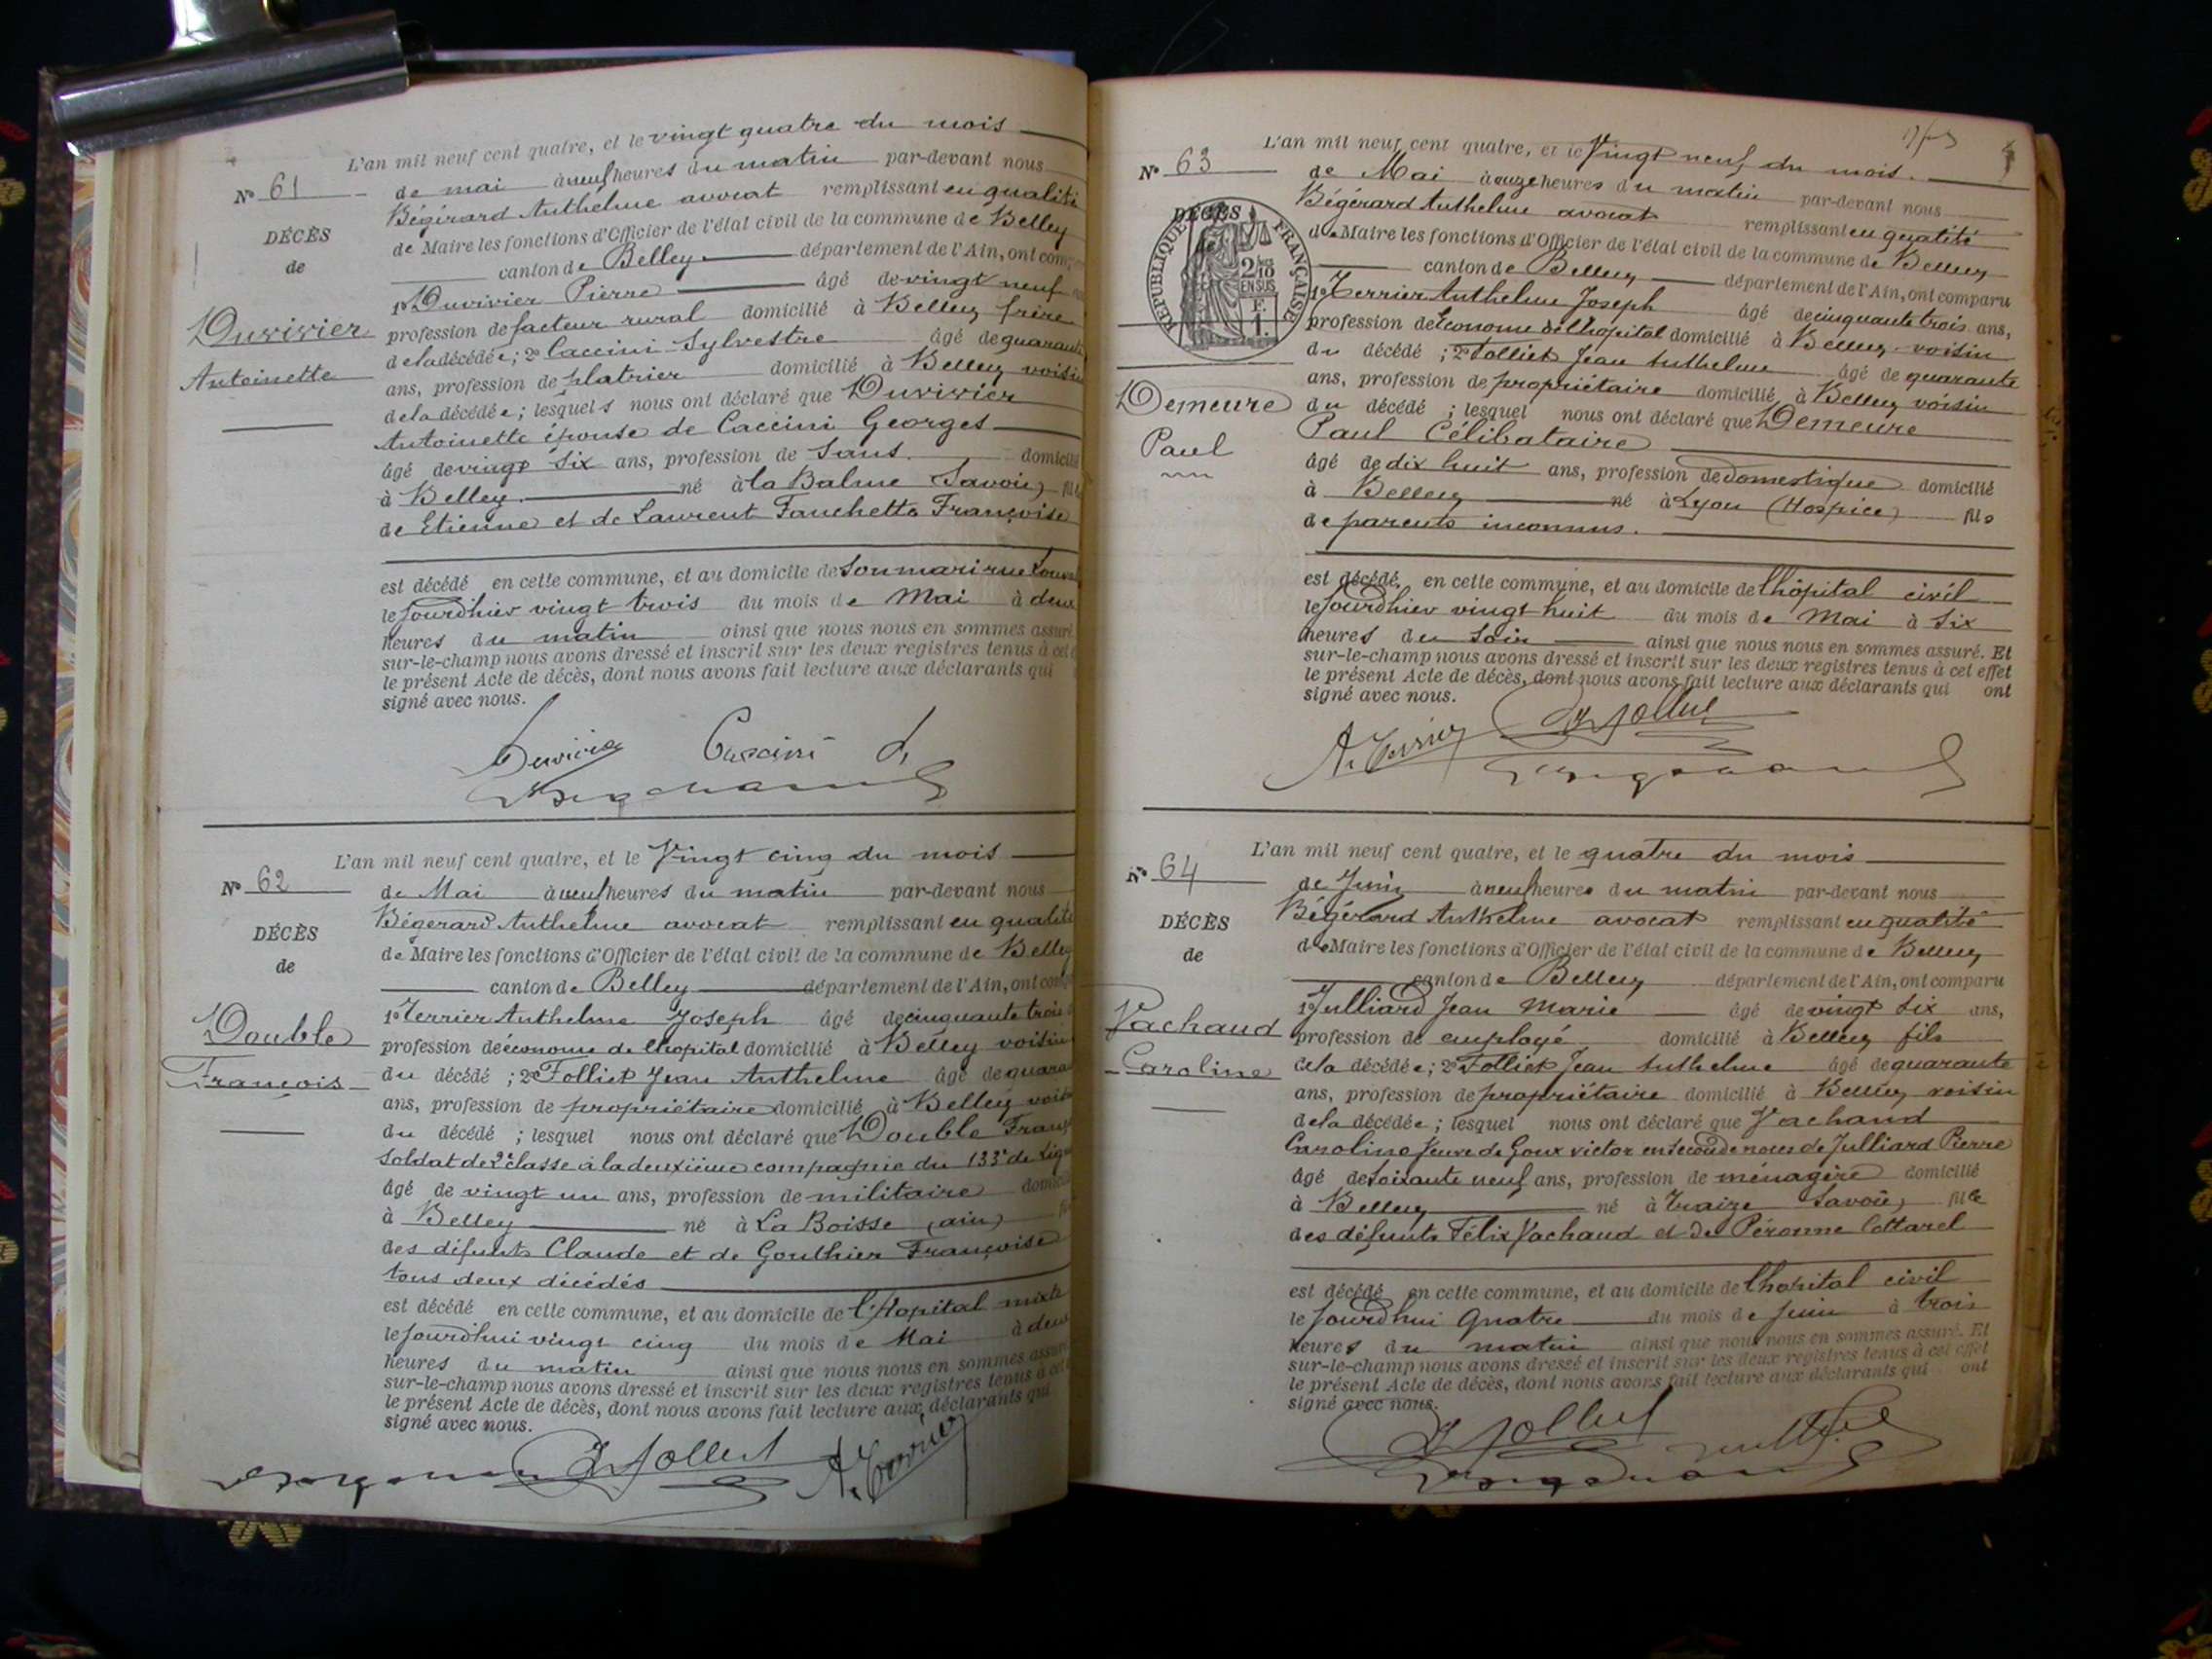 L'an mil neuf cent quatre, et le vingt quatre du mois
No 61
de mai à neuf heures du matin par-devant nous
Bégérard Anthelme avocat remplissant en qualité
DÉCÈS
de
de Maire les fonctions d'Officier de l'état civil de la commune de Belley
canton de Belley département de l'Ain, ont
1o Duvivier Pierre âgé de vingt neuf
Duvivier
Antoinette
profession de facteur rural domicilié à Belley frère
de la décédée; 2o Caccini Sylvestre âgé de quarante
ans, profession de platrier domicilié à Belley voisin
de la décédée; lesquels nous ont déclaré que Duvivier
Antoinette épouse de Caccini Georges
âgé de vingt six ans, profession de Sans domicilié
à Belley né à la Balme (Savoie)
de Etienne et de Laurent Fanchette Françoise
est décédé en cette commune, et au domicile de Son mari rue
le Jourdhier vingt trois du mois de Mai à deux
heures du matin ainsi que nous nous en sommes assuré
sur-le-champ nous avons dressé et inscrit sur les deux registres tenus à cet
le présent Acte de décès, dont nous avons fait lecture aux déclarants qui
signé avec nous.
Duvivier Caccini
L'an mil neuf cent quatre, et le Vingt cinq du mois
No 62
de Mai à neuf heures du matin par-devant nous
Bégerard Anthelme avocat remplissant en qualité
DÉCÈS
de
de Maire les fonctions d'Officier de l'état civil de la commune de Belley
canton de Belley département de l'Ain, ont
1o Terrier Anthelme Joseph âgé de cinquante trois
Double
François
profession de économe de lhopital domicilié à Belley voisin
du décédé; 2o Folliet Jean Anthelme âgé de
ans, profession de propriétaire domicilié à Belley
du décédé; lesquel nous ont déclaré que Double
Soldat de 2e classe à la deuxième compagnie du 133e de
âgé de vingt un ans, profession de militaire
à Belley né à La Boisse (ain)
des défunts Claude et de Gouthier Françoise
tous deux décédés
est décédé en cette commune, et au domicile de l'Hopital mixte
le Jourdhui vingt cinq du mois de Mai à deux
heures du matin ainsi que nous nous en sommes assuré
sur-le-champ nous avons dressé et inscrit sur les deux registres tenus à cet
le présent Acte de décès, dont nous avons fait lecture aux déclarants qui
signé avec nous.
J Folliet A. Terrier
L'an mil neuf cent quatre, et le Vingt neuf du mois.
No 63
de Mai à onze heures du matin par-devant nous
Bégérard Anthelme avocat remplissant en qualité
DÉCÈS
de
RÉPUBLIQUE FRANÇAISE
2/10 EN SUS
F. 1.
de Maire les fonctions d'Officier de l'état civil de la commune de Belley
canton de Belley département de l'Ain, ont comparu
1o Terrier Anthelme Joseph âgé de cinquante trois ans,
profession de Econome de lhopital domicilié à Belley voisin
du décédé; 2o Folliet Jean Anthelme âgé de quarante
Demeure
Paul
ans, profession de propriétaire domicilié à Belley voisin
du décédé; lesquel nous ont déclaré que Demeure
Paul Célibataire
âgé de dix huit ans, profession de domestique domicilié
à Belley né à Lyon (Hospice) fils
de parents inconnus.
est décédé en cette commune, et au domicile de lhôpital civil
le Jourdhier vingt huit du mois de Mai à Six
heures du Soir ainsi que nous nous en sommes assuré. Et
sur-le-champ nous avons dressé et inscrit sur les deux registres tenus à cet effet
le présent Acte de décès, dont nous avons fait lecture aux déclarants qui ont
signé avec nous.
A. Terrier J Folliet
L'an mil neuf cent quatre, et le quatre du mois
No 64
de Juin à neuf heures du matin par-devant nous
Bégérard Anthelme avocat remplissant en qualité
DÉCÈS
de
de Maire les fonctions d'Officier de l'état civil de la commune de Belley
canton de Belley département de l'Ain, ont comparu
1o Julliard Jean Marie âgé de vingt Six ans,
Vachaud
Caroline
profession de employé domicilié à Belley fils
de la décédée; 2o Folliet Jean Anthelme âgé de quarante
ans, profession de propriétaire domicilié à Belley voisin
de la décédée; lesquel nous ont déclaré que Vachaud
Caroline Veuve de Goux victor en seconde noces de Julliard Pierre
âgé de Soixante neuf ans, profession de ménagère domicilié
à Belley né à Traize (Savoie) fille
des défunts Félix Vachaud et de Péronne Cottarel
est décédé en cette commune, et au domicile de lhopital civil
le Jourdhui Quatre du mois de Juin à trois
heures du matin ainsi que nous nous en sommes assuré. Et
sur-le-champ nous avons dressé et inscrit sur les deux registres tenus à cet effet
le présent Acte de décès, dont nous avons fait lecture aux déclarants qui ont
signé avec nous.
J Folliet